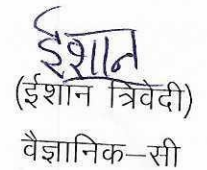 ईशान
(ईशान त्रिवेदी)
वैज्ञानिक–सी